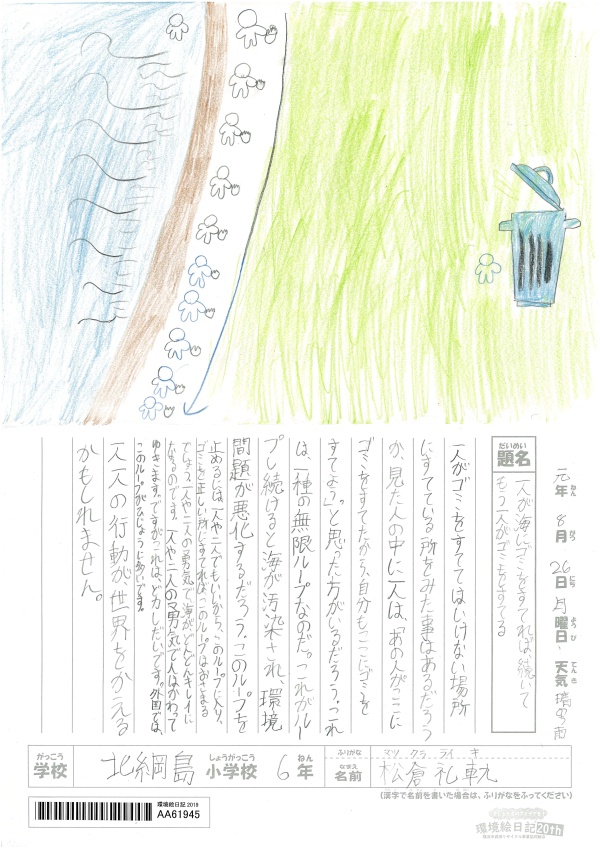 元年 8月 26日 月曜日・天気 晴
ねん がつ にち ようび てんき
だいめい
題名
一人が海にゴミをすてれば、続いて
もう一人がゴミをすてる
人がゴミをすててはいけない場所
にすてている所をみた事はあるだろう
か、見た人の中に一人は、あの人がここに
ゴミをすてたから、自分もここにゴミを
すてよう。と思った方がいるだろう。これ
は、一種の無限ループなのだ。これがルー
プし続けると海が汚染され、環境
問題が悪化するだろう。このループを
止めるには、一人や二人でもいいから、このループに入り、
ゴミを正しい所にすてれば、このループはおさまる
でしょう。一人や二人の勇気で海がどんどんキレイに
なるのです。一人や二人の勇気で人はかわって
ゆきます。ですがこれは、どりょくしだいです。外国では、
このループがひじょうに多いです。
一人一人の行動が世界をかえる
かもしれません。
がっこう しょうがっこう ねん
学校 北綱島 小学校 6年
ふりがな マツ クラ ライ キ
なまえ
名前 松倉礼軌
(漢字で名前を書いた場合は、ふりがなをふってください)
環境絵日記2019
AA61945
環境絵日記20th